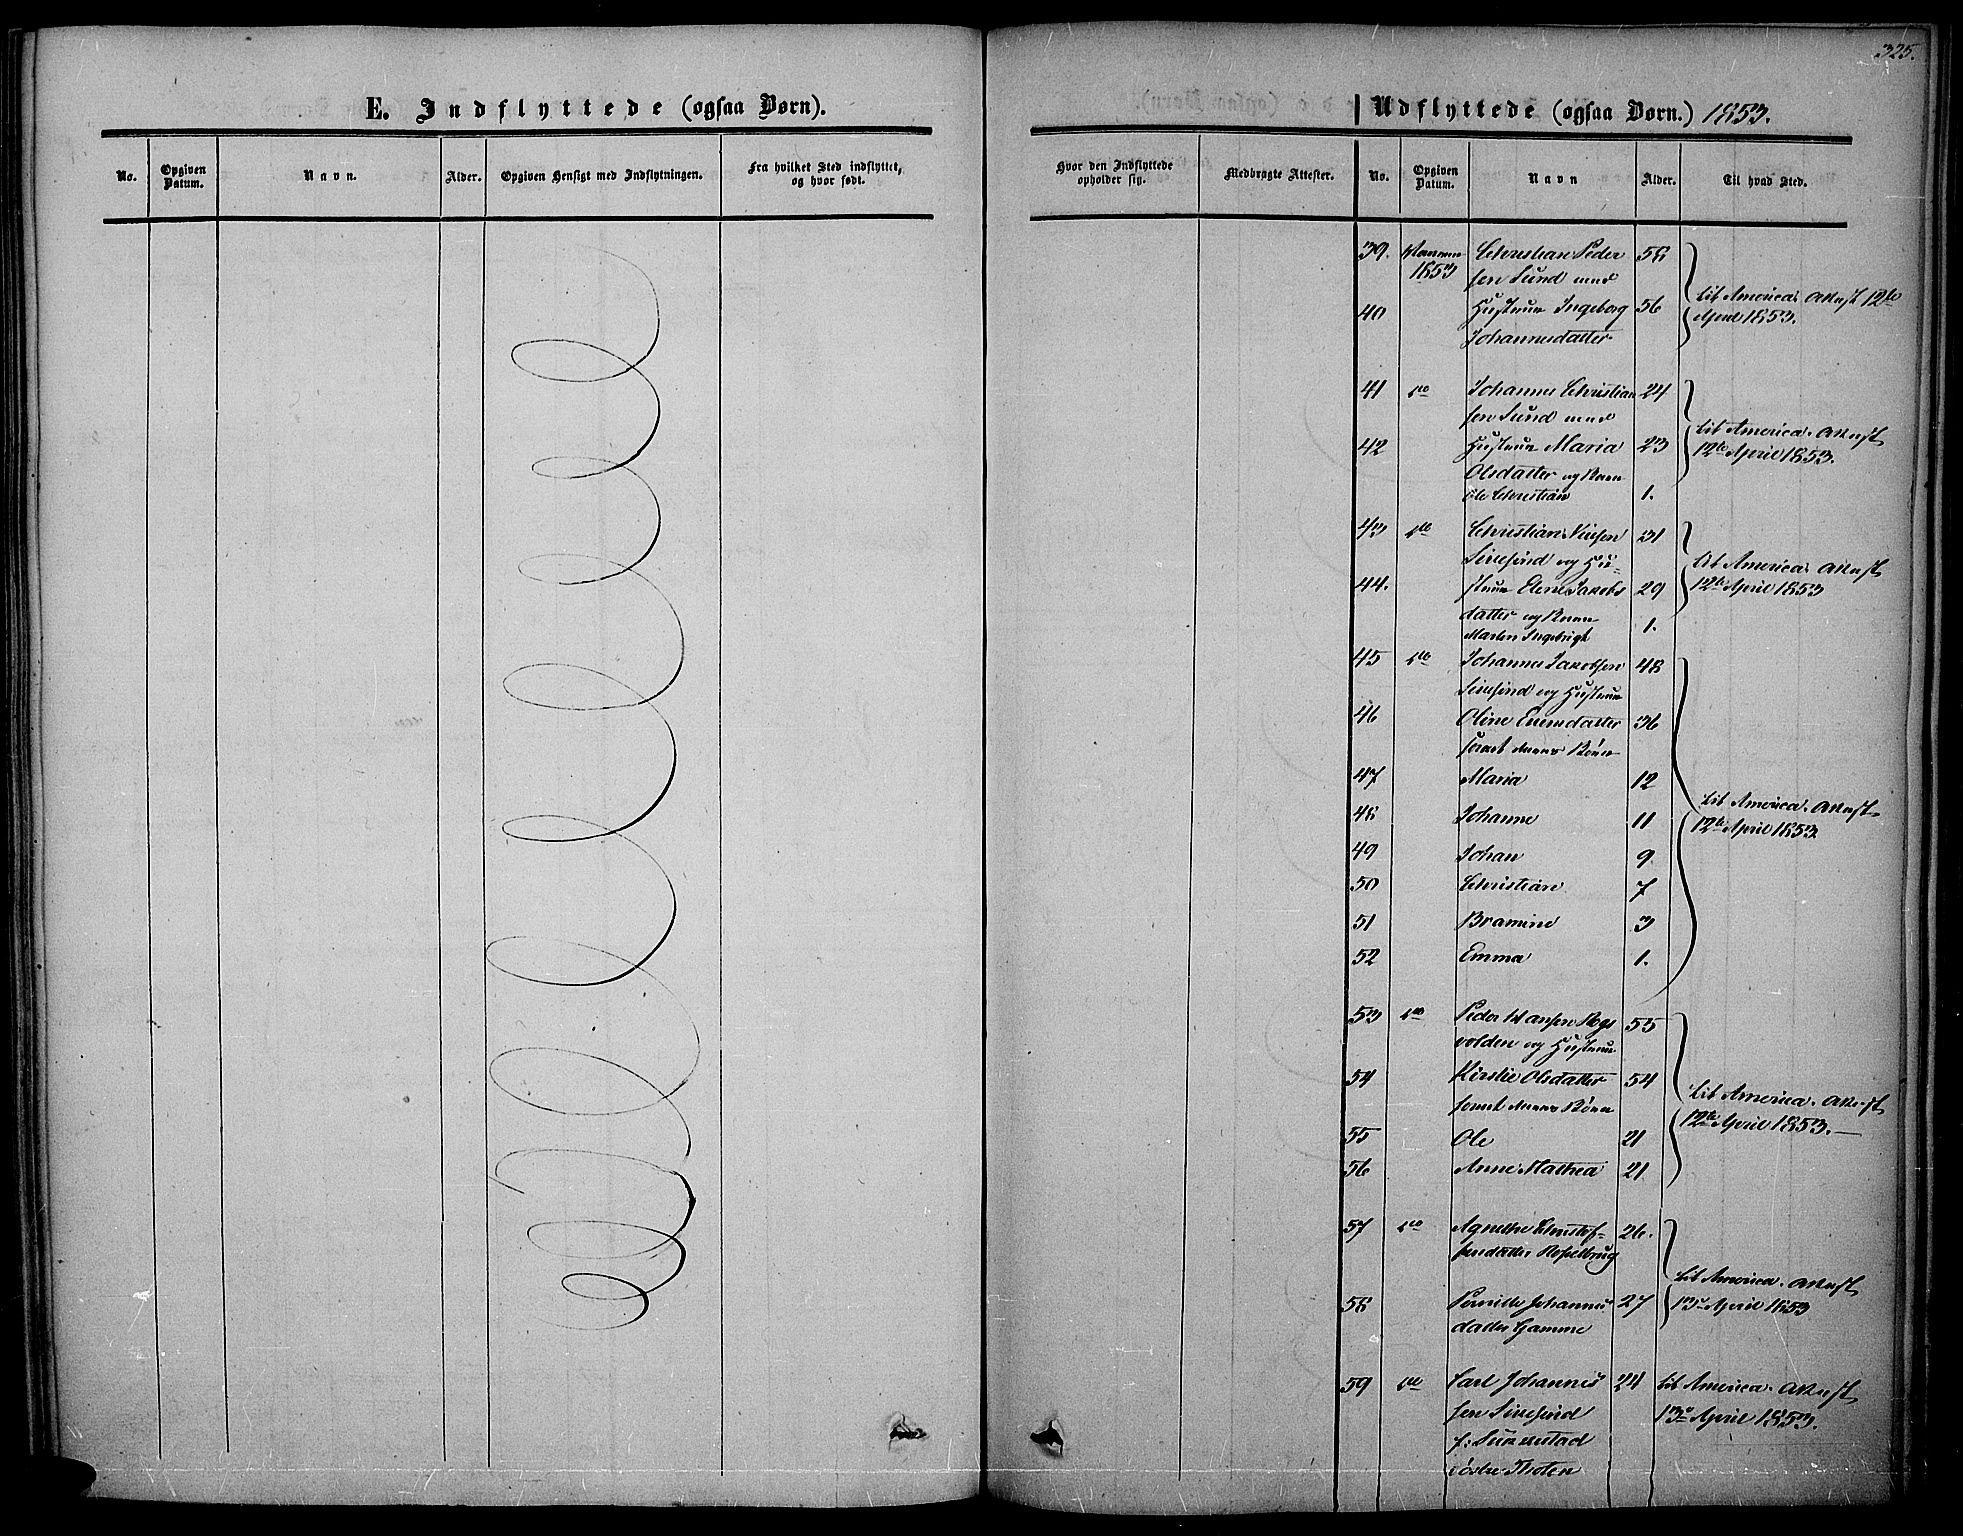 325.
E. Indflyttede (ogsaa Børn).
No. Opgiven Datum. Navn. Alder. Opgiven Hensigt med Indflytningen. Fra hvilket Sted indflyttet, og hvor født.
Udflyttede (ogsaa Børn.) 1853.
Hvor den Indflyttede opholder sig. Medbragte Attester. No. Opgiven Datum. Navn Alder. Til hvad Sted.
39. 1853 Christian Peder 58
sen Sund med
40 Hustrue Ingeborg 56 til America. Attest 12te
Johannesdatter April 1853.
41 do Johannes Christian 24
sen Sund med
42 Hustrue Maria 23 til America. Attest
Olsdatter og Barn 12te April 1853.
Ole Christian 1.
43 do Christian 31
og Hu- til America. Attest
44. strue Elene Jacobs 29 12te April 1853
datter og Barn
Martin Ingebrigt 1.
45 do Johannes Jacobsen 48
og Hustrue
46 Oline Evensdatter 36
samt deres Børn
47 Maria 12
48 Johanne 11 til America. Attest
12te April 1853
49 Johan 9
50 Christian 7
51 Bramine 3
52 Emma 1.
53 do Peder Hansen Rogs 55
volden og Hustrue
54 Kirstie Olsdatter 54 til America. Attest
samt deres Børn 12te April 1853.
55 Ole 21
56 Anne Mathea 21
57 do Agnethe Christof- 26.
fersdatter
til America. Attest
58 Pernille Johannes 27 13de April 1853
datter Gamme
59 do Carl Johannes 24 til America. Attest
sen 13de April 1853.
f:
i østre Thoten